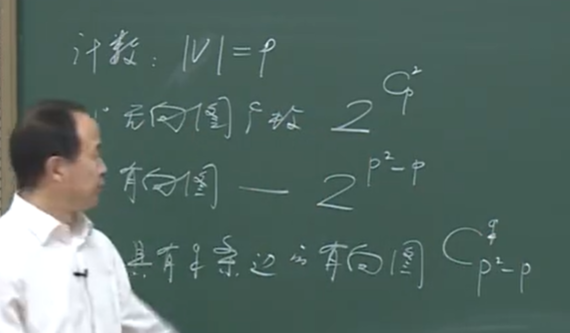 计数: |V|=p
无向图个数 2^{C_p^2}
有向图 — 2^{p^2-p}
具有q条边的有向图 C_{p^2-p}^q